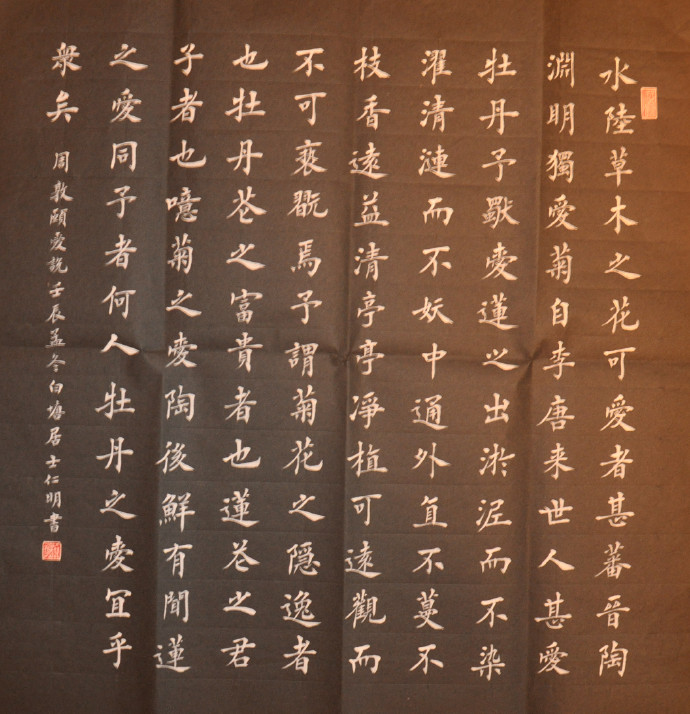 水陸草木之花可愛者甚蕃晉陶
淵明獨愛菊自李唐来世人甚愛
牡丹予獸愛蓮之出淤泥而不染
濯清漣而不妖中通外直不蔓不
枝香遠益清亭亭凈植可遠觀而
不可褻翫焉予謂菊花之隠逸者
也牡丹花之富貴者也蓮花之君
子者也噫菊之愛陶後鮮有聞蓮
之愛同予者何人牡丹之愛宜乎
衆矣
周敦頤愛説壬辰孟冬白塢居士仁明書